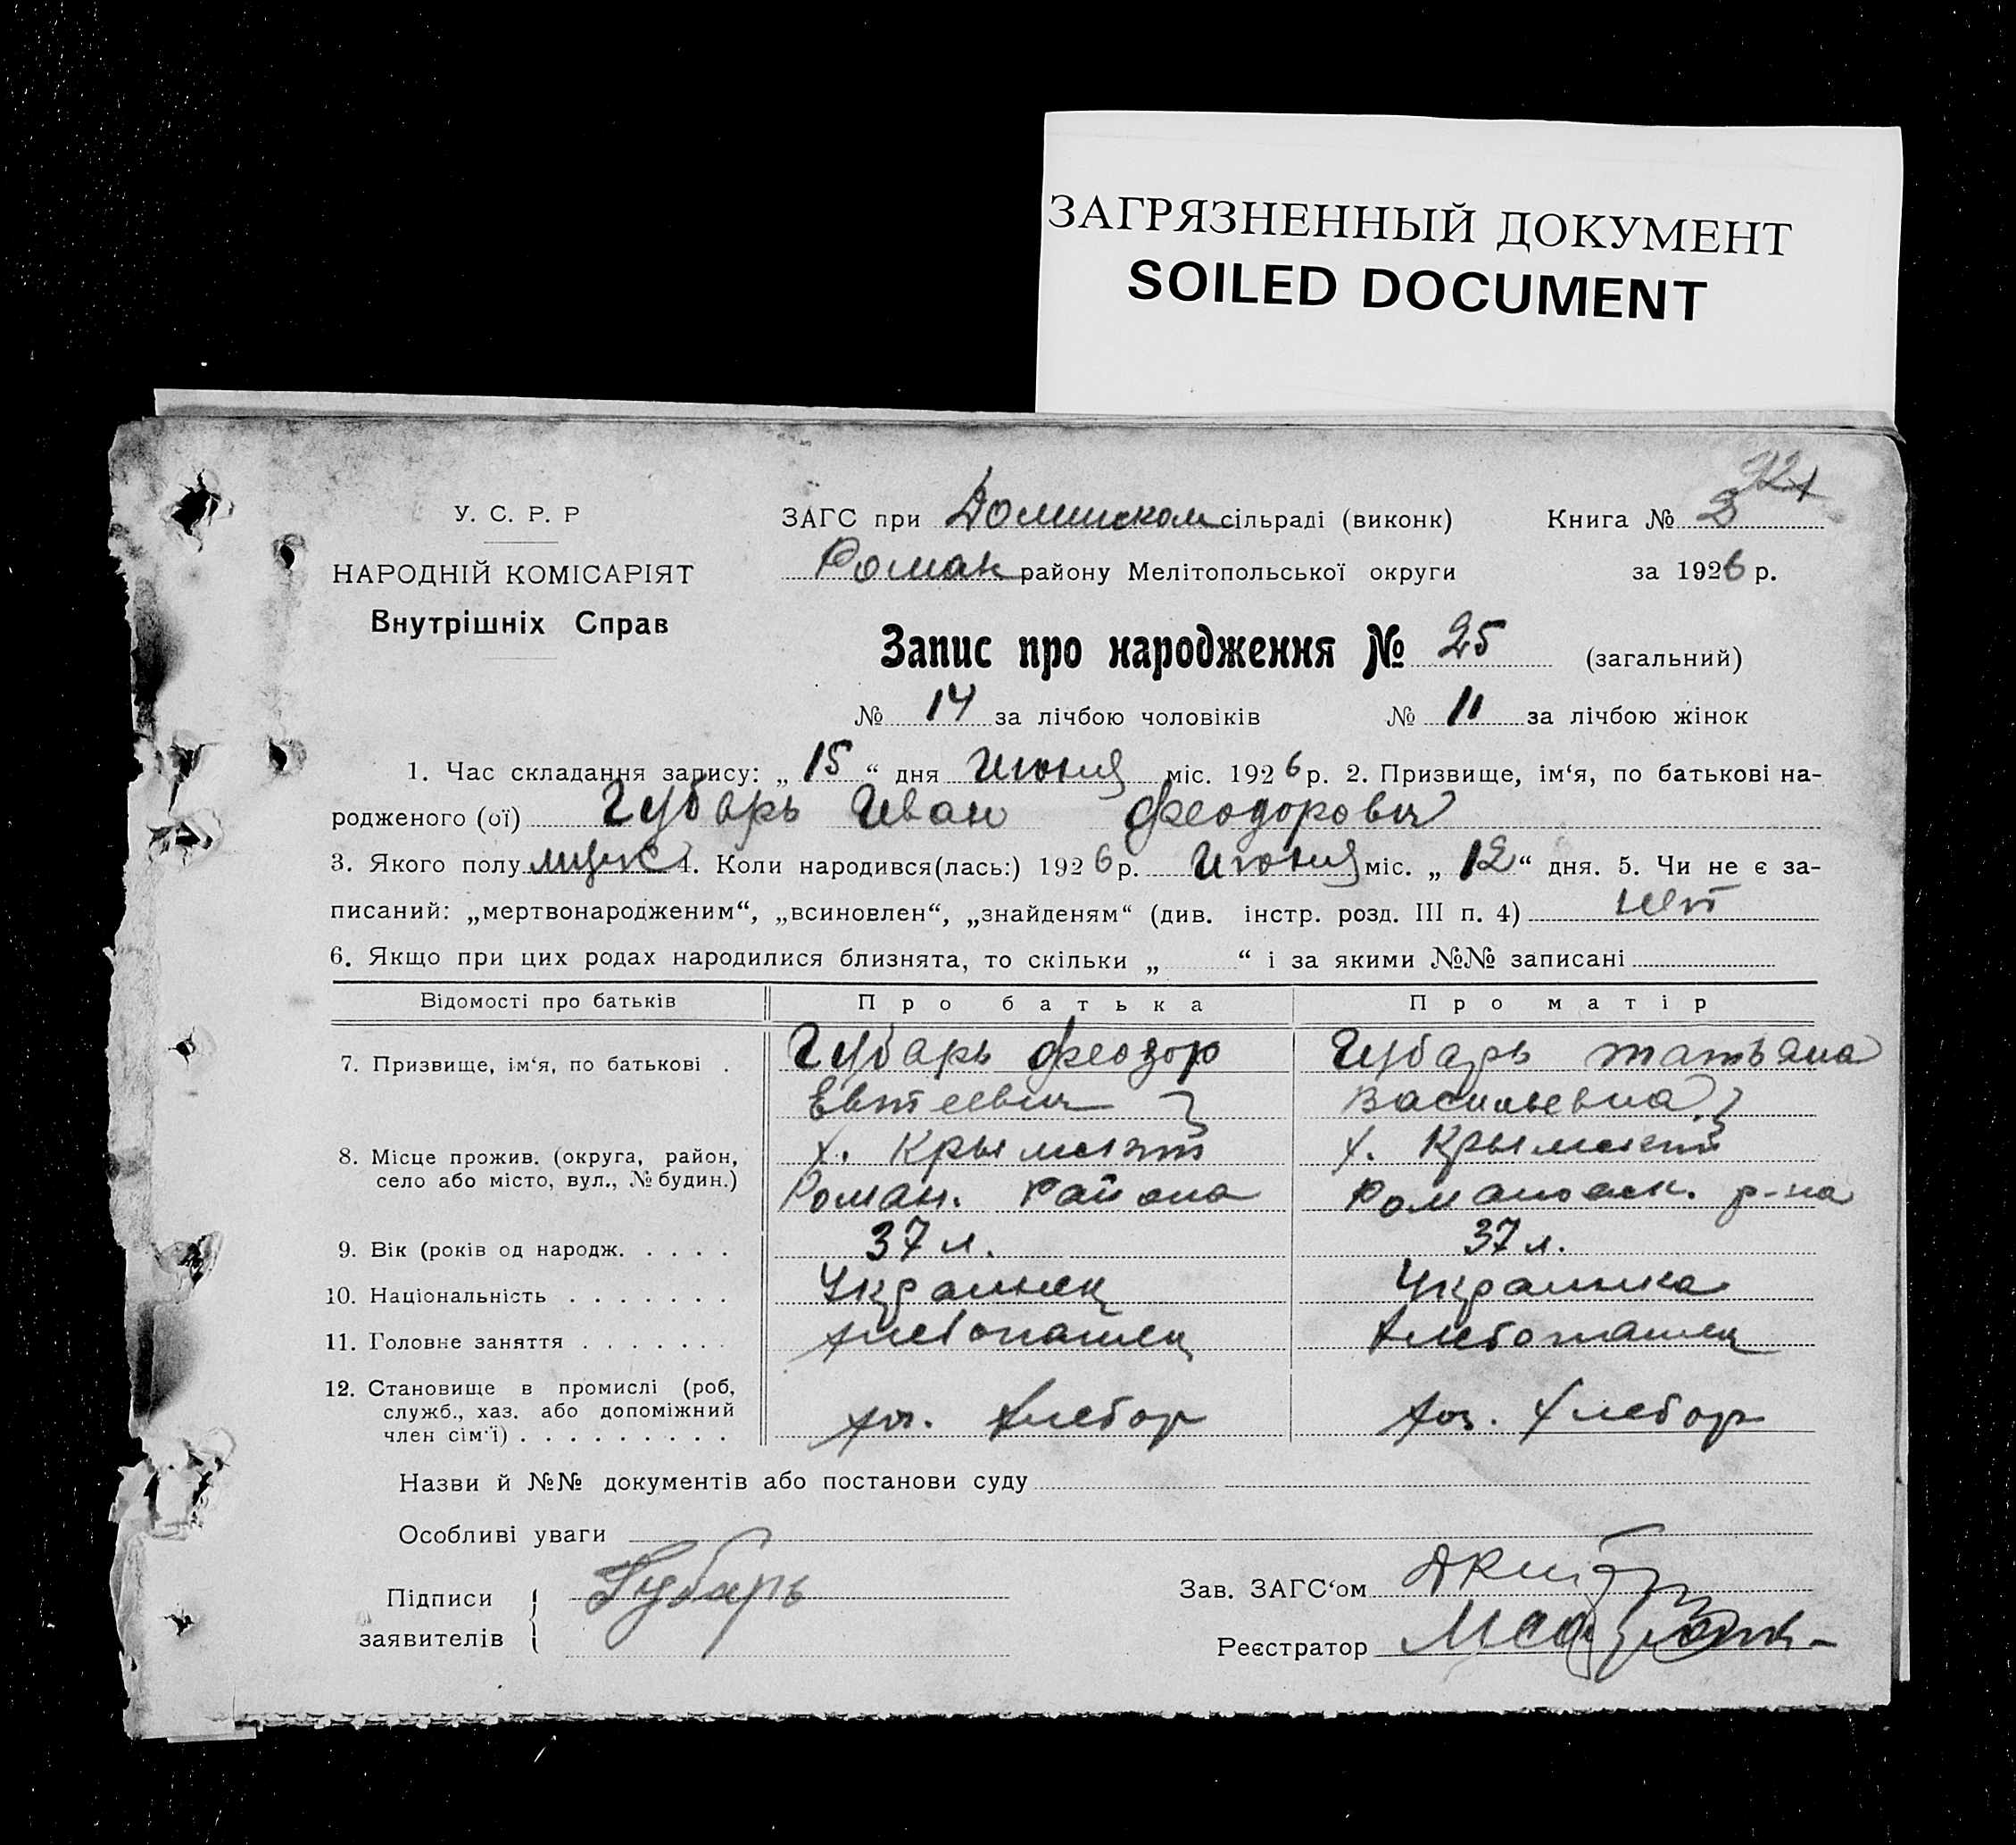 ЗАГРЯЗНЕННЫЙ ДОКУМЕНТ
SOILED DOCUMENT
У. С. Р. Р
НАРОДНІЙ КОМІСАРІЯТ
Внутрішніх Справ
ЗАГС при сільраді (виконк) Книга № 3
Роман району Мелітопольської округи за 1926 р.
Запис про народження № 25 (загальний)
№ 14 за лічбою чоловіків № 11 за лічбою жінок
1. Час складання запису: „ 15 “ дня Июня міс. 1926 р. 2. Призвище, ім‘я, по батькові на-
родженого (ої) Губарь Иван Феодорович
3. Якого полу муж 4. Коли народився(лась:) 1926 р. Июня міс. „ 12 “ дня. 5. Чи не є за-
писаний: „мертвонародженим“, „всиновлен“, „знайденям“ (див. інстр. розд. III п. 4) нет
6. Якщо при цих родах народилися близнята, то скільки „ “ і за якими №№ записані
Відомості про батьків Про батька Про матір
7. Призвище, ім‘я, по батькові . Губарь Феодор Губарь Татьяна
Евтеевич Васильевна
8. Місце прожив. (округа, район, село або місто, вул., № будин.) х. х.
Роман. Района Романовск. р-на
9. Вік (років од народж. . . . . 37 л. 37 л.
10. Національність . . . . . . . Украинец Украинка
11. Головне заняття . . . . . . . Хлебопашец Хлебопашец
12. Становище в промислі (роб, служб., хаз. або допоміжний член сім‘ї) . . . . . . . . . хоз. хлебор хоз. хлебор
Назви й №№ документів або постанови суду
Особливі уваги
Підписи заявителів Губарь
Зав. ЗАГС‘ом
Реєстратор